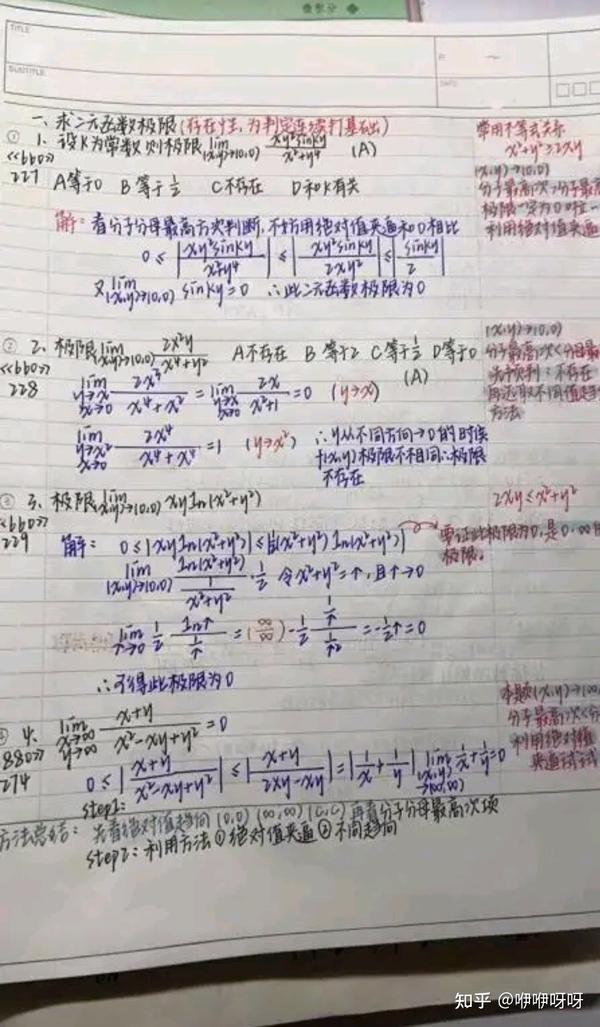 微积分
TITLE
SUBTITLE
DATE
一、求二元函数极限(存在性,为判定连续打基础)
① 1. 设K为常数 则极限 lim (x,y)→(0,0) xy²sinky / x²+y⁴ (A)
<<660>>
227 A等于0 B等于1/2 C不存在 D和K有关
解: 看分子分母最高方次判断,不妨用绝对值夹逼和0相比
0 ≤ |xy²sinky / x²+y⁴| ≤ |xy²sinky / 2xy²| ≤ |sinky / 2|
又 lim (x,y)→(0,0) sinky=0 ∴此二元函数极限为0
常用不等式关系
x²+y²≥2xy
(x,y)→(0,0)
分子最高次>分子最高
极限一定为0
利用绝对值夹逼
② 2. 极限 lim (x,y)→(0,0) 2x²y / x⁴+y² A不存在 B等于2 C等于1/2 D等于0
<<660>>
228
(A)
lim y→x x→0 2x³ / x⁴+x² = lim y→x x→0 2x / x²+1 =0 (y→x)
lim y→x² x→0 2x⁴ / x⁴+x⁴ =1 (y→x²) ∴y从不同方向→0的时候
f(x,y)极限不相同∴极限
不存在
(x,y)→(0,0)
分子最高次<分母最
先预判:不存在
再选取不同值
方法
③ 3. 极限 lim (x,y)→(0,0) xyln(x²+y²)
<<660>>
229
解: 0≤|xyln(x²+y²)|≤|½(x²+y²)ln(x²+y²)|
lim (x,y)→(0,0) ln(x²+y²) / 1/(x²+y²) · 1/2 令x²+y²=↑,且↑→0
lim ↑→0 1/2 ln↑ / 1/↑ =(∞/∞) -1/2 1/↑ / 1/↑² =-1/2↑=0
∴可得此极限为0
2xy≤x²+y²
要证此极限为0,是0·∞
极限。
4. lim x→∞ y→∞ x+y / x²-xy+y² =0
880>>
274
0≤|x+y / x²-xy+y²|≤|x+y / 2xy-xy|=|1/x+1/y| lim (x,y)→(∞,∞) 1/x+1/y=0
本题(x,y)→(∞
分子最高次<分
利用绝对值
夹逼试试
step1:
方法总结: 先看绝对值趋向 (0,0) (∞,∞) (C,C) 再看分子分母最高次项
step2:利用方法①绝对值夹逼②不同趋向
知乎 @咿咿呀呀